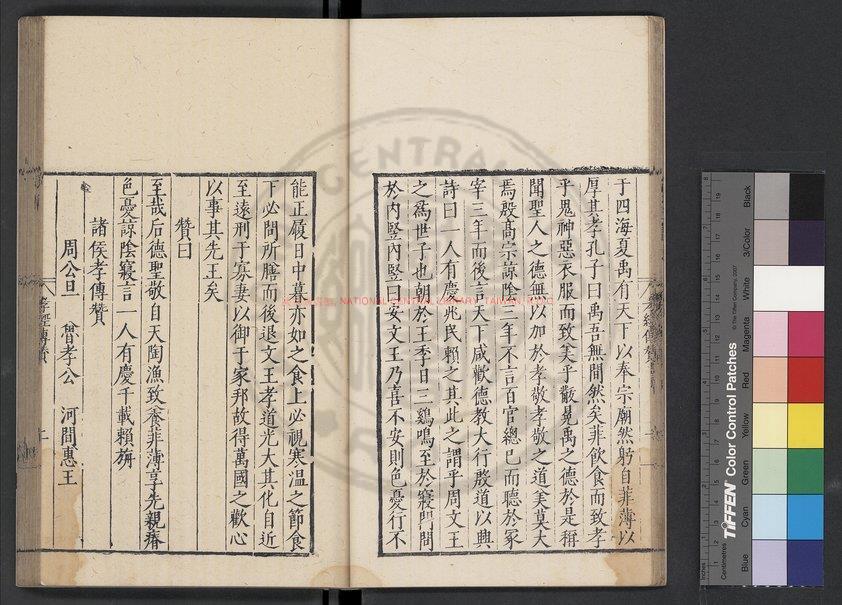 于四海夏禹有天下以奉宗廟然躬自菲薄以
厚其孝孔子曰禹吾無間然矣菲飲食而致孝
乎鬼神惡衣服而致美乎黻冕禹之德於是稱
聞聖人之德無以加於孝敬孝敬之道美莫大
焉殷高宗諒陰三年不言百官總已而聽於冢
宰三年而後言天下咸歡德教大行殷道以興
詩曰一人有慶兆民賴之其此之謂乎周文王
之爲世子也朝於王季日三鷄鳴至於寢門問
於内竪内竪曰安文王乃喜不安則色憂行不
能正履日中暮亦如之食上必視寒温之節食
下必問所膳而後退文王孝道光大其化自近
至遠刑于寡妻以御于家邦故得萬國之歡心
以事其先王矣
贊曰
至哉后德聖敬自天陶漁致養菲薄享先親瘠
色憂諒陰寢言一人有慶千載賴旃
諸侯孝傳贊
周公旦 魯孝公 河間惠王
孝經傳贊
NATIONAL CENTRAL LIBRARY, TAIWAN, R.O.C.
TIFFEN Color Control Patches
© The Tiffen Company, 2007
Blue
Cyan
Green
Yellow
Red
Magenta
White
3/Color
Black
Inches
Centimetres